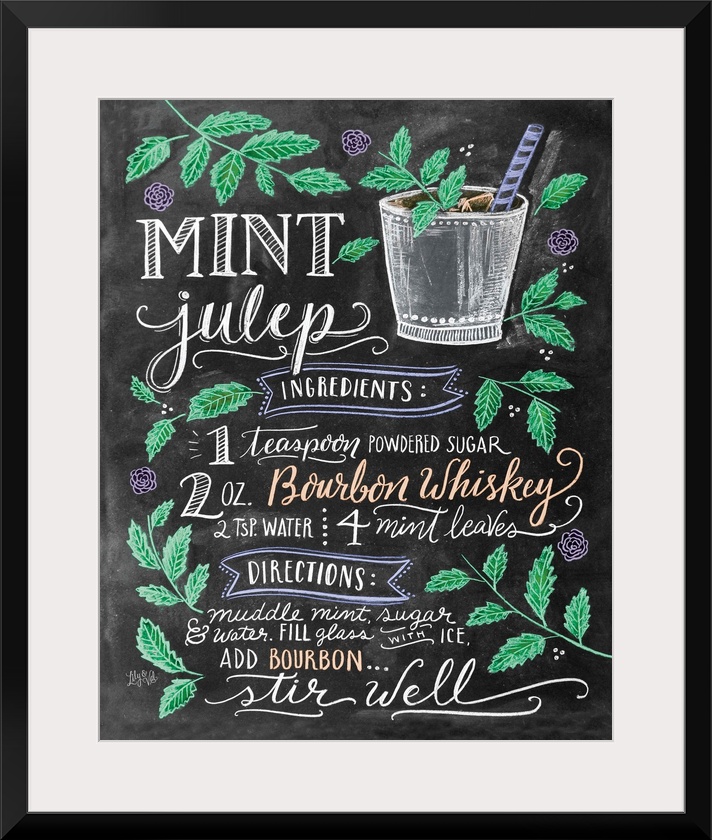 MINT
julep
INGREDIENTS:
1 teaspoon POWDERED SUGAR
2 OZ. Bourbon Whiskey
2 TSP. WATER 4 mint leaves
DIRECTIONS:
muddle mint, sugar
& water. FILL glass WITH ICE,
ADD BOURBON...
stir well
Lily & Val